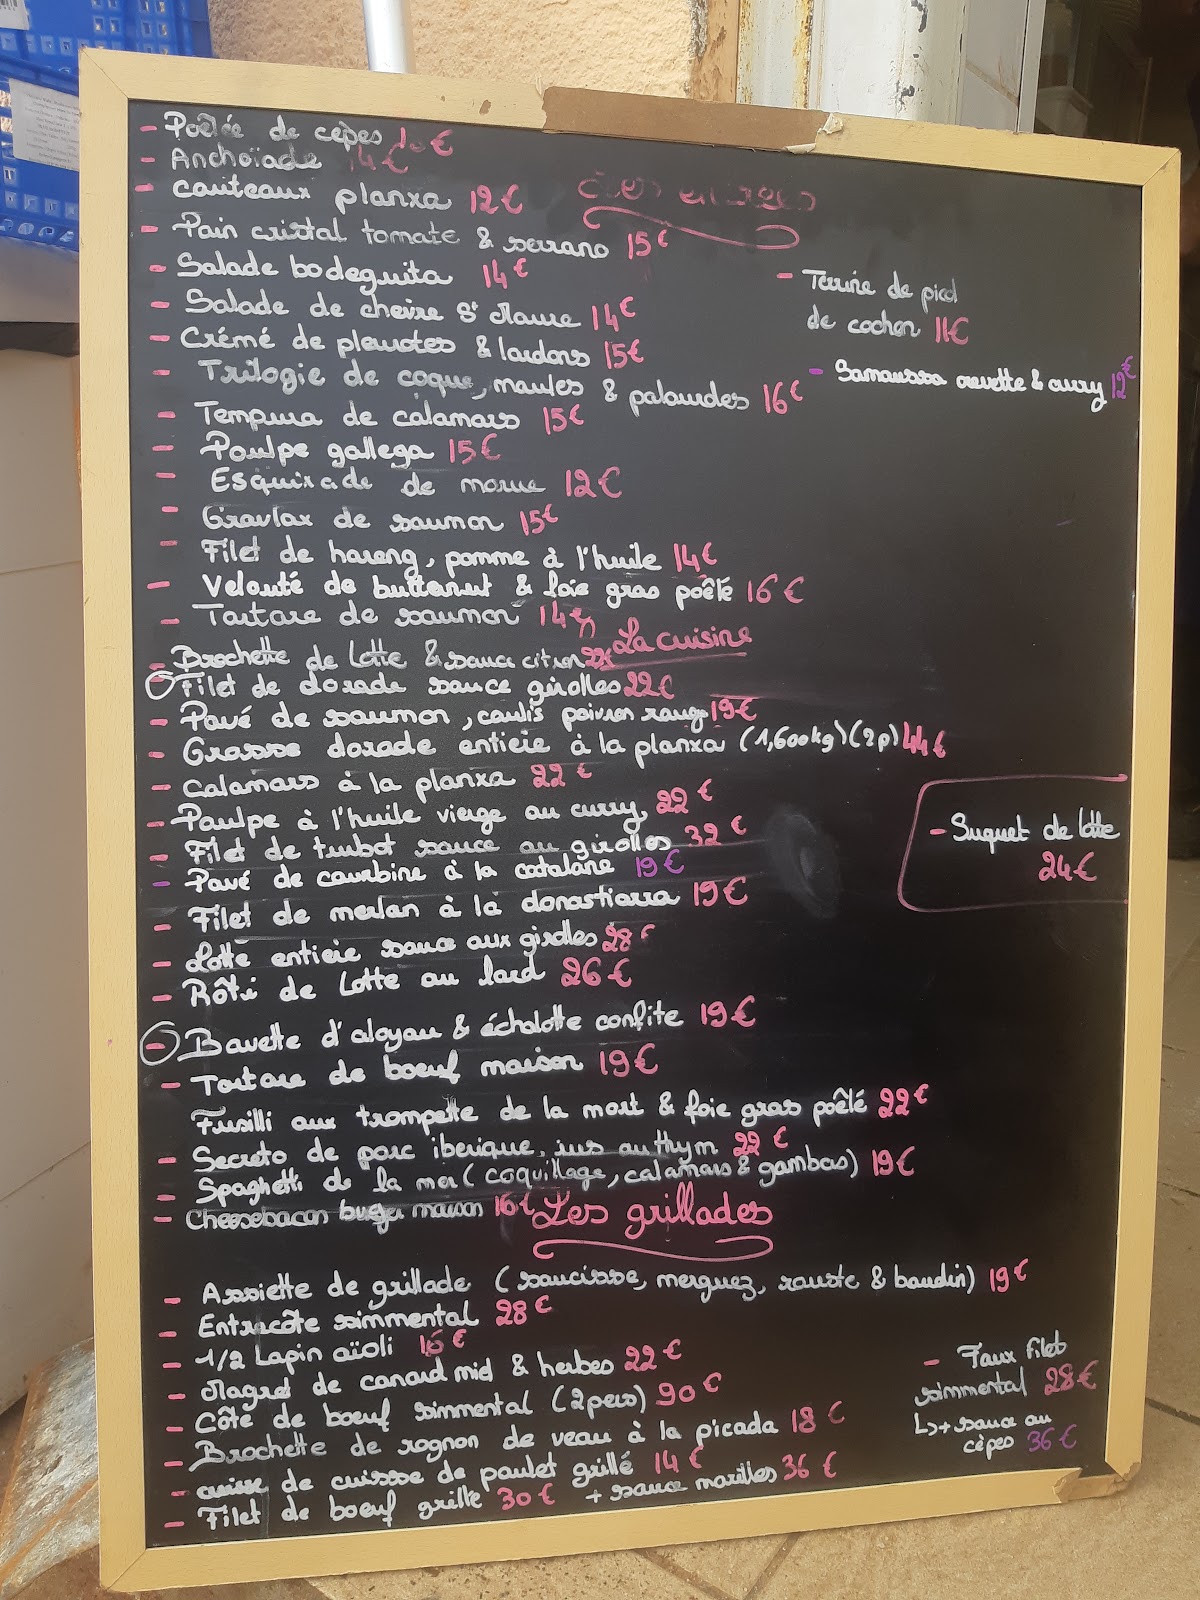 - Poêlée de cèpes €
- Anchoïade 14€
Les entrées
- couteaux planxa 12€
- Pain cristal tomate & serrano 15€
- Salade bodeguita 14€
- Salade de chèvre St Maure 14€
- Crémé de pleurotes & lardons 15€
- Trilogie de coque, moules & palourdes 16€
- Tempura de calamars 15€
- Poulpe gallega 15€
- Esquixade de morue 12€
- Gravlax de saumon 15€
- Filet de hareng, pomme à l'huile 14€
- Velouté de butternut & foie gras poêlé 16€
- Tartare de saumon 14€
- Terrine de pied
de cochon 11€
- Samoussa crevette & curry 12€
La cuisine
- Brochette de lotte & sauce citron
- Filet de dorade sauce girolles 22€
- Pavé de saumon, coulis poivron rouge 19€
- Grosse dorade entière à la planxa (1,600kg) (2p) 44€
- Calamars à la planxa 22€
- Poulpe à l'huile vierge au curry 22€
- Filet de turbot sauce au girolles 32€
- Pavé de courbine à la catalane 19€
- Filet de merlan à la donostiarra 19€
- Lotte entière sauce aux girolles 28€
- Rôti de Lotte au lard 26€
- Suquet de lotte
24€
- Bavette d'aloyau & échalotte confite 19€
- Tartare de boeuf maison 19€
Fusilli aux trompette de la mort & foie gras poêlé 22€
- Secreto de porc iberique, jus au thym 22€
- Spaghetti de la mer (coquillage, calamars & gambas) 19€
- Cheesebacon burger maison 16€
Les grillades
- Assiette de grillade (saucisse, merguez, rouste & boudin) 19€
- Entrecôte simmental 28€
- 1/2 Lapin aïoli 16€
- Magret de canard miel & herbes 22€
- Côte de boeuf simmental (2pers) 90€
- Brochette de rognon de veau à la picada 18€
- cuisse de cuissse de poulet grillé 14€
- Filet de boeuf grillé 30€ + sauce morilles 36€
- Faux filet
simmental 28€
↳ + sauce au
cèpes 36€